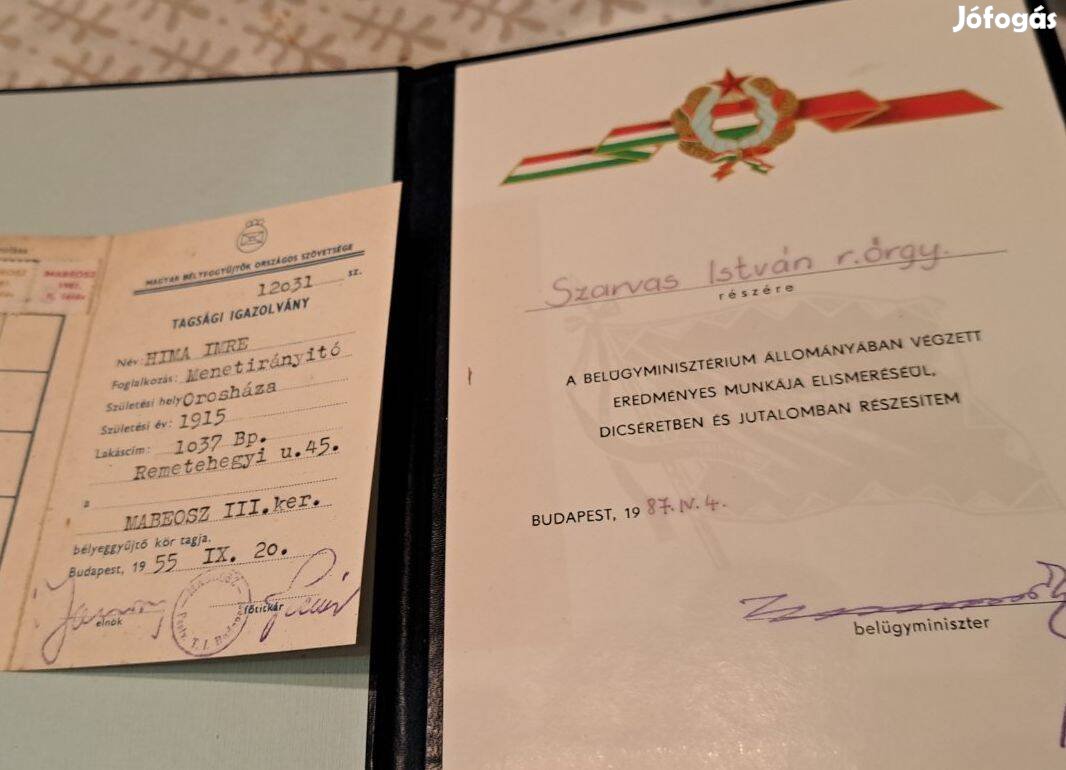 Jófogás
MABEOSZ
MAGYAR BÉLYEGGYŰJTŐK ORSZÁGOS SZÖVETSÉGE
12031 sz.
TAGSÁGI IGAZOLVÁNY
Név: HIMA IMRE
Foglalkozás: Menetirányító
Születési hely Orosháza
Születési év: 1915
Lakáscím: 1o37 Bp.
Remetehegyi u.45.
a
MABEOSZ III.ker.
bélyeggyűjtő kör tagja.
Budapest, 19 55 IX. 20.
elnök
főtitkár
Szarvas István r.őrgy.
részére
A BELÜGYMINISZTÉRIUM ÁLLOMÁNYÁBAN VÉGZETT
EREDMÉNYES MUNKÁJA ELISMERÉSÉÜL,
DICSÉRETBEN ÉS JUTALOMBAN RÉSZESÍTEM
BUDAPEST, 19 87. IV. 4.
belügyminiszter